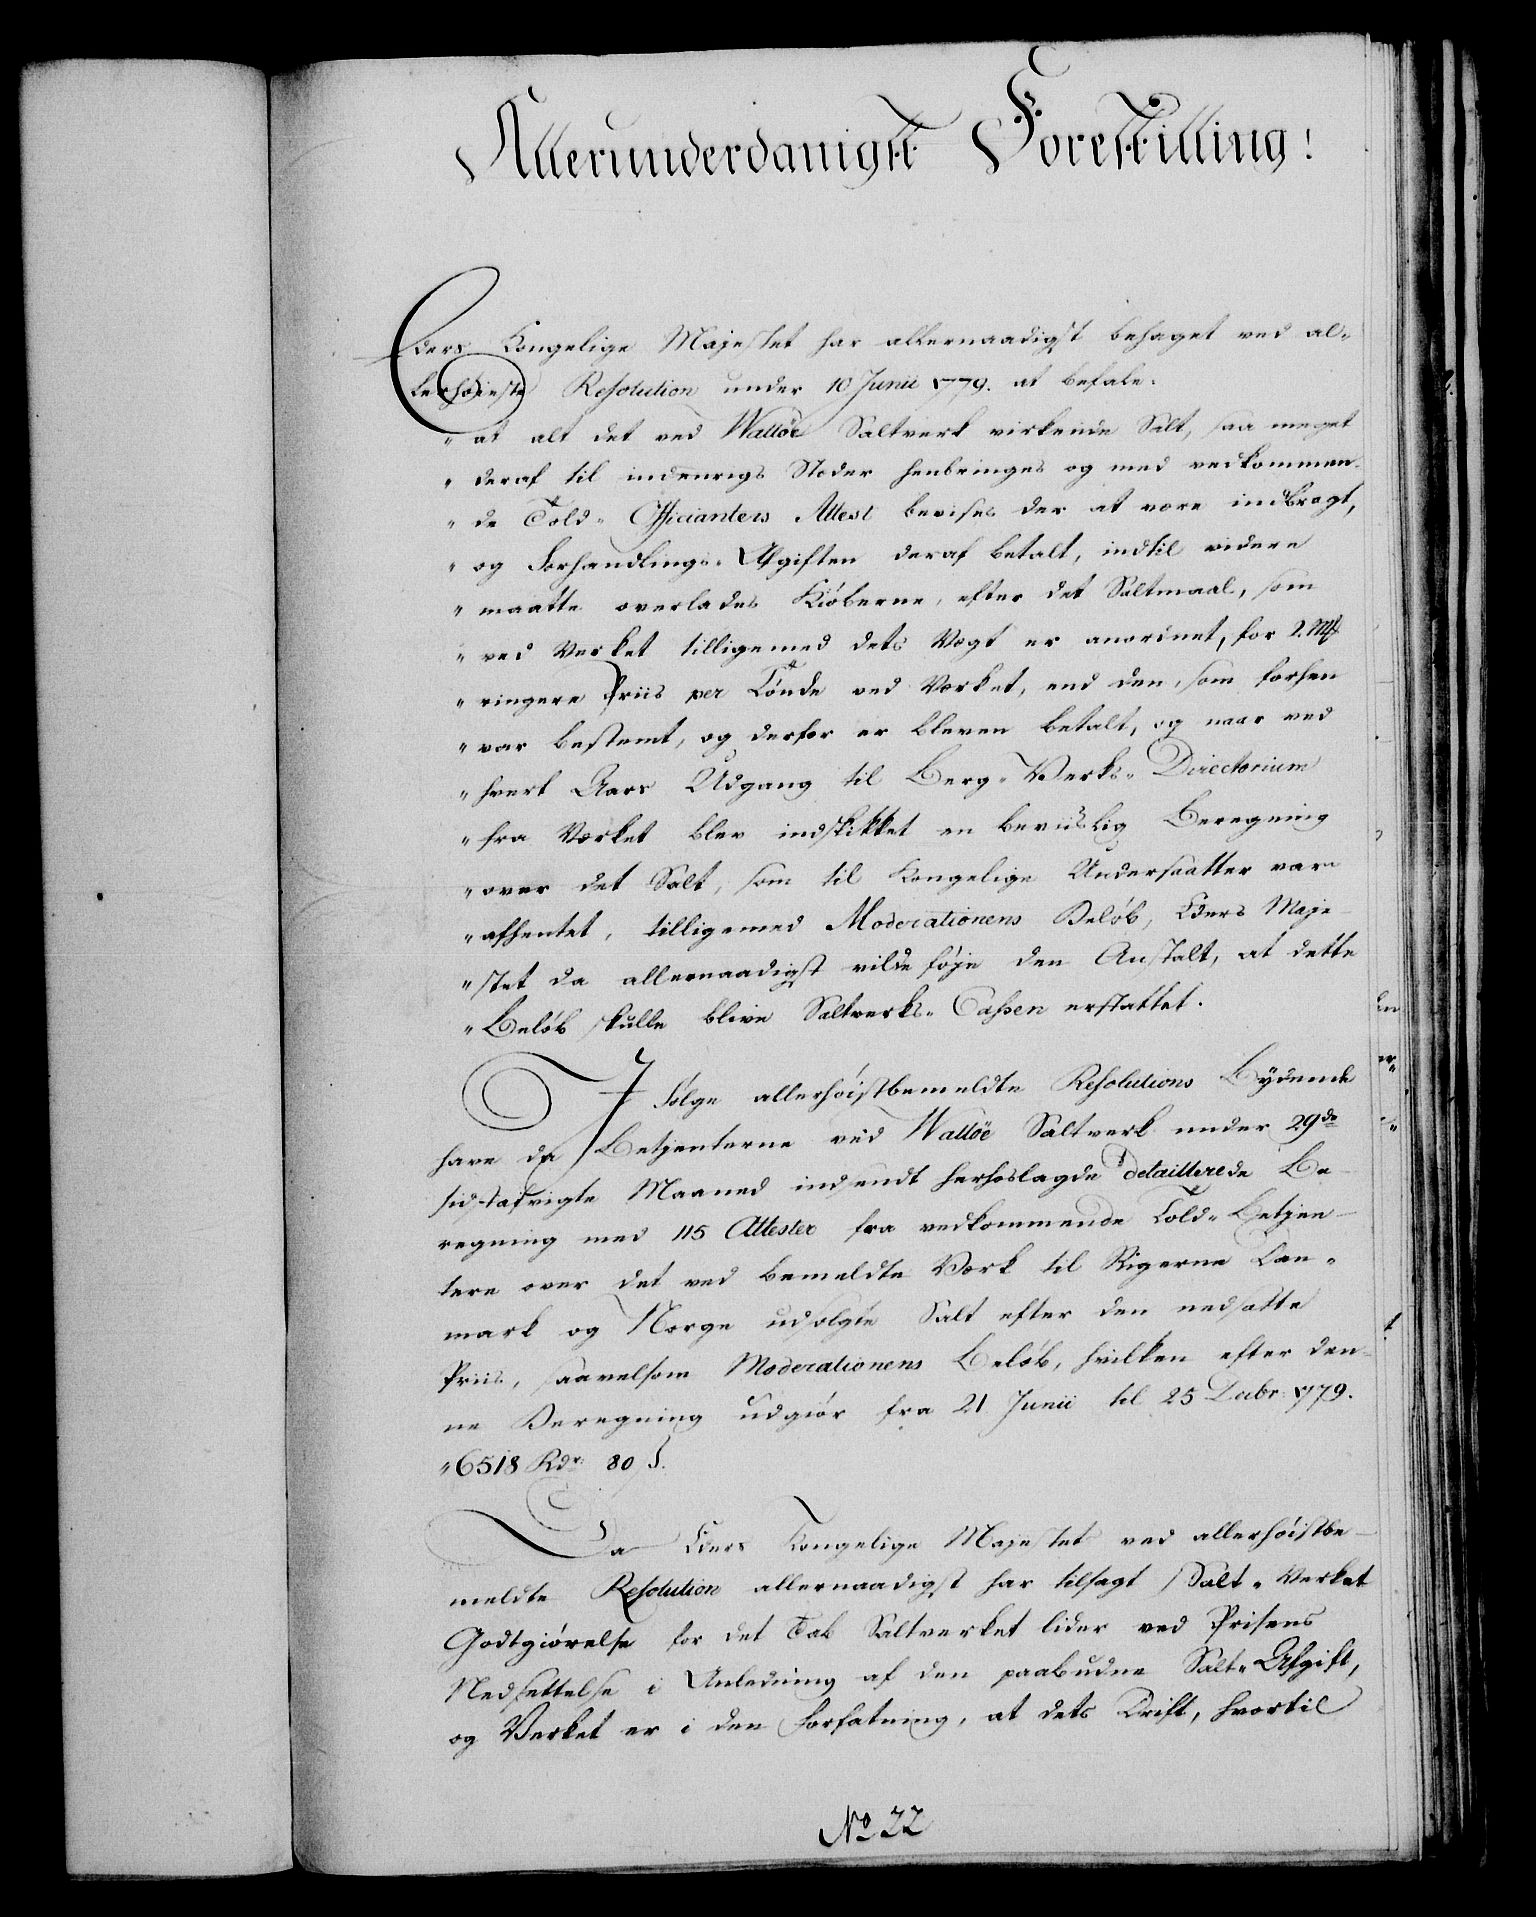 Allerunderdanigst Forestilling!
Eders Kongelige Majestet har allernaadigst behaget ved al-
lerhøieste Resolution under 10 Junii 1779. at befale.
" at alt det ved Walløe Saltverk virkende Salt, saa meget
" deraf til indenrigs Stæder henbringes og med vedkommen-
" de Told-Officianters Attest bevises der at være indbragt,
" og Forhandlings-Afgiften deraf betalt, indtil videre
" maatte overlades Kiøberne, efter det Saltmaal, som
" ved Verket tilligemed dets Vægt er anordnet, for 2 Mk
" ringere Priis per Tønde ved Værket, end den, som forhen
" var bestemt, og derfor er bleven betalt, og naar ved
" hvert Aars Udgang til Berg-Verks-Directorium
" fra Værket blev indskikket en beviislig Beregning
" over det Salt, som til Kongelige Undersaatter var
" afhentet, tilligemed Moderationens Beløb, Eders Maje-
" stet da allernaadigst vilde føje den Anstalt, at dette
" Beløb skulle blive Saltverks-Cassen erstattet.
I Følge allerhøistbemeldte Resolutions Bydende
have da Betjenterne ved Walløe Saltverk under 29de
sidstafvigte Maaned indsendt herhoslagde detaillerede Be-
regning med 115 Attester fra vedkommende Told-Betjen-
tere over det ved bemeldte Værk til Rigerne Dan-
mark og Norge udsolgte Salt efter den nedsatte
Priis, saavelsom Moderationens Beløb, hvilken efter den-
ne Beregning udgiør fra 21 Junii til 25 Decbr 1779.
" 6518 Rdr 80 s.
Da Eders Kongelige Majestet ved allerhøistbe-
meldte Resolution allernaadigst har tilsagt Salt-Verket
Godtgiørelse for det Tab Saltverket lider ved Prisens
Nedsettelse i Anledning af den paabudne Salt-Afgift,
og Verket er i den Forfatning, at dets Drift, hvortil
No 22